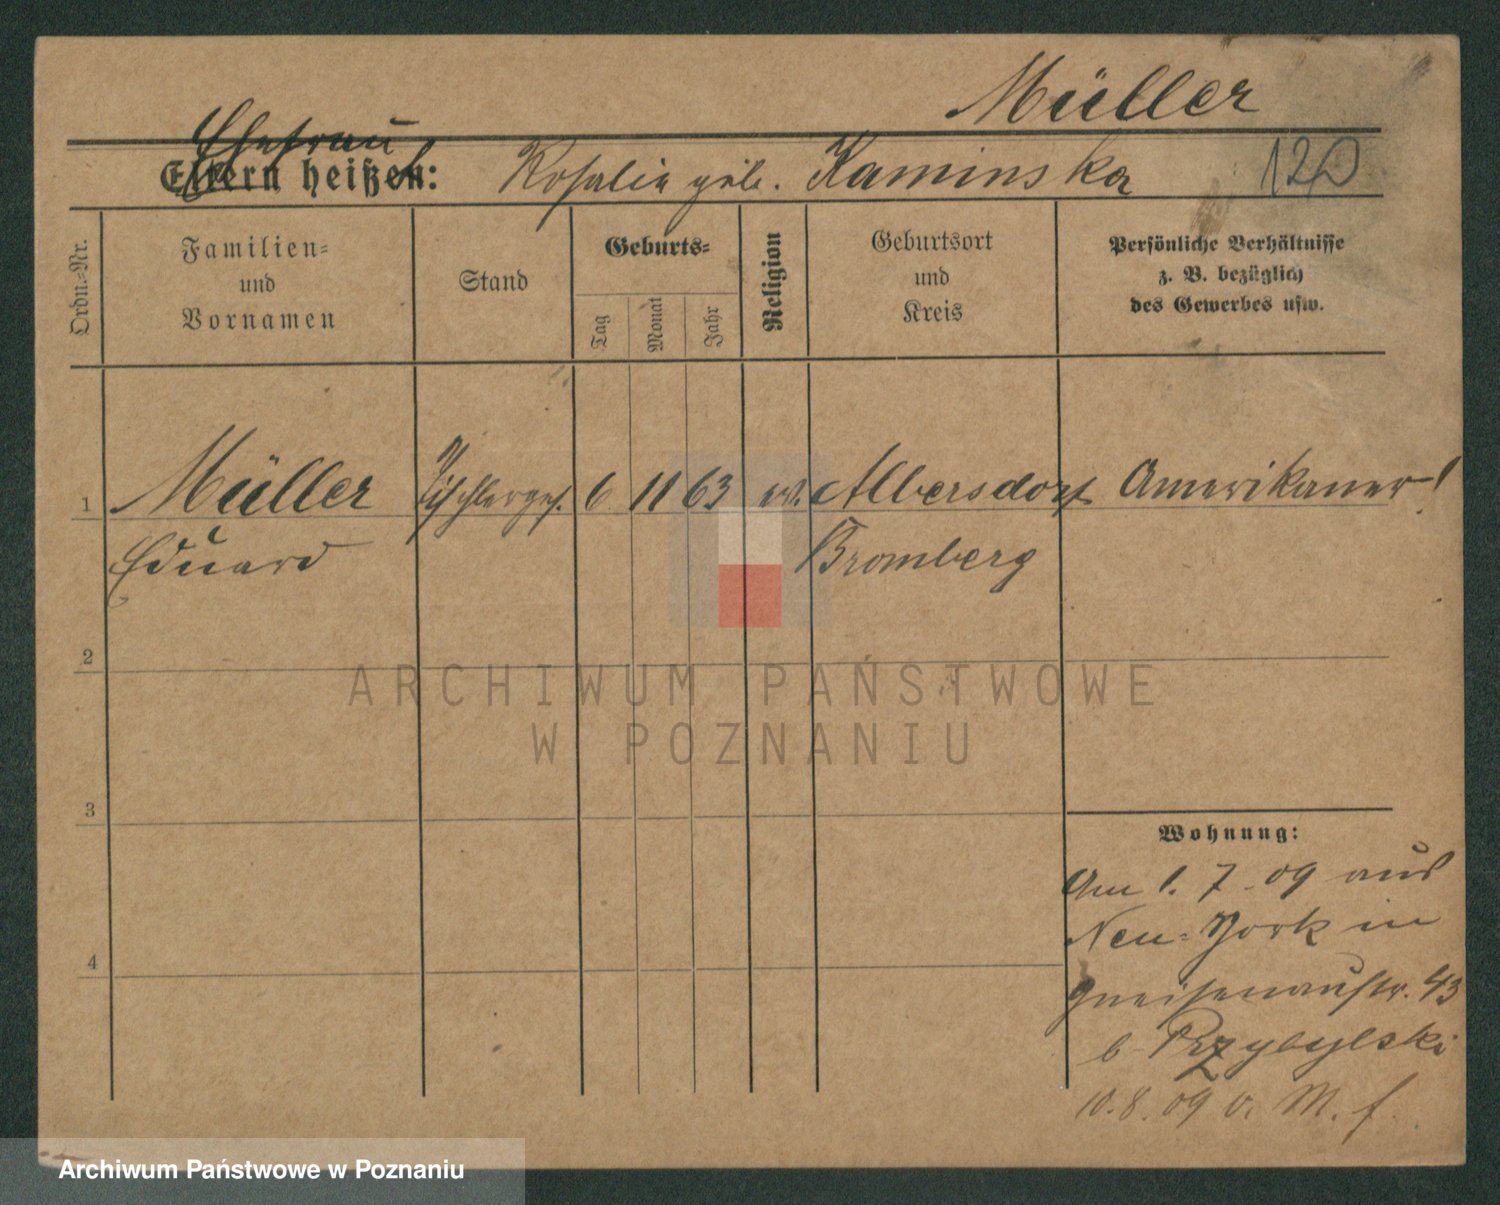 Müller
Ehefrau
Eltern heißen: Rosalie geb. Kaminska 120
Ordn.-Nr.
Familien-
und
Vornamen
Stand
Geburts-
Tag
Monat
Jahr
Religion
Geburtsort
und
Kreis
Persönliche Verhältnisse
z. B. bezüglich
des Gewerbes usw.
1 Müller Tischlerges. 6 11 63 ev. Albersdorf Amerikaner!
Eduard Bromberg
2
3
4
Wohnung:
Am 1. 7. 09 aus
Neu-York in
Gneisenaustr. 43
b Przybylski
10.8.09 v. M. f.
ARCHIWUM PAŃSTWOWE
W POZNANIU
Archiwum Państwowe w Poznaniu